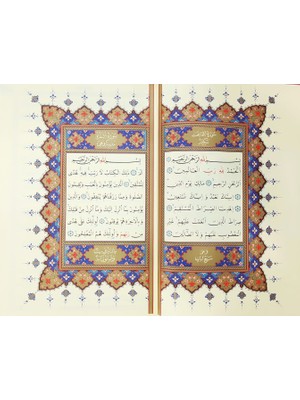 بِسْمِ اللّٰهِ الرَّحْمٰنِ الرَّحِيمِ
اَلْحَمْدُ لِلّٰهِ رَبِّ الْعَالَمِينَ
اَلرَّحْمٰنِ الرَّحِيمِ
اِيَّاكَ نَعْبُدُ وَاِيَّاكَ
نَسْتَعِينُ اِهْدِنَا الصِّرَاطَ الْمُسْتَقِيمَ
صِرَاطَ الَّذِينَ اَنْعَمْتَ عَلَيْهِمْ غَيْرِ
الْمَغْضُوبِ عَلَيْهِمْ وَلَا الضَّالِّينَ
بِسْمِ اللّٰهِ الرَّحْمٰنِ الرَّحِيمِ
الٓمٓ ذٰلِكَ الْكِتَابُ لَا رَيْبَ فِيهِ هُدًى
لِلْمُتَّقِينَ اَلَّذِينَ يُؤْمِنُونَ بِالْغَيْبِ وَيُقِيمُونَ
الصَّلٰوةَ وَمِمَّا رَزَقْنَاهُمْ يُنْفِقُونَ وَالَّذِينَ
يُؤْمِنُونَ بِمَا اُنْزِلَ اِلَيْكَ وَمَا اُنْزِلَ مِنْ قَبْلِكَ
وَبِالْاٰخِرَةِ هُمْ يُوقِنُونَ اُولٰئِكَ عَلٰى هُدًى
مِنْ رَبِّهِمْ وَاُولٰئِكَ هُمُ الْمُفْلِحُونَ